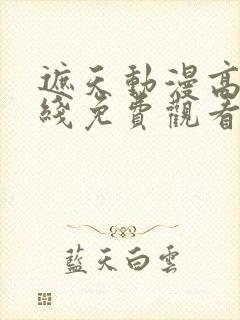 遮天動漫高
綫免費觀看
藍天白雲